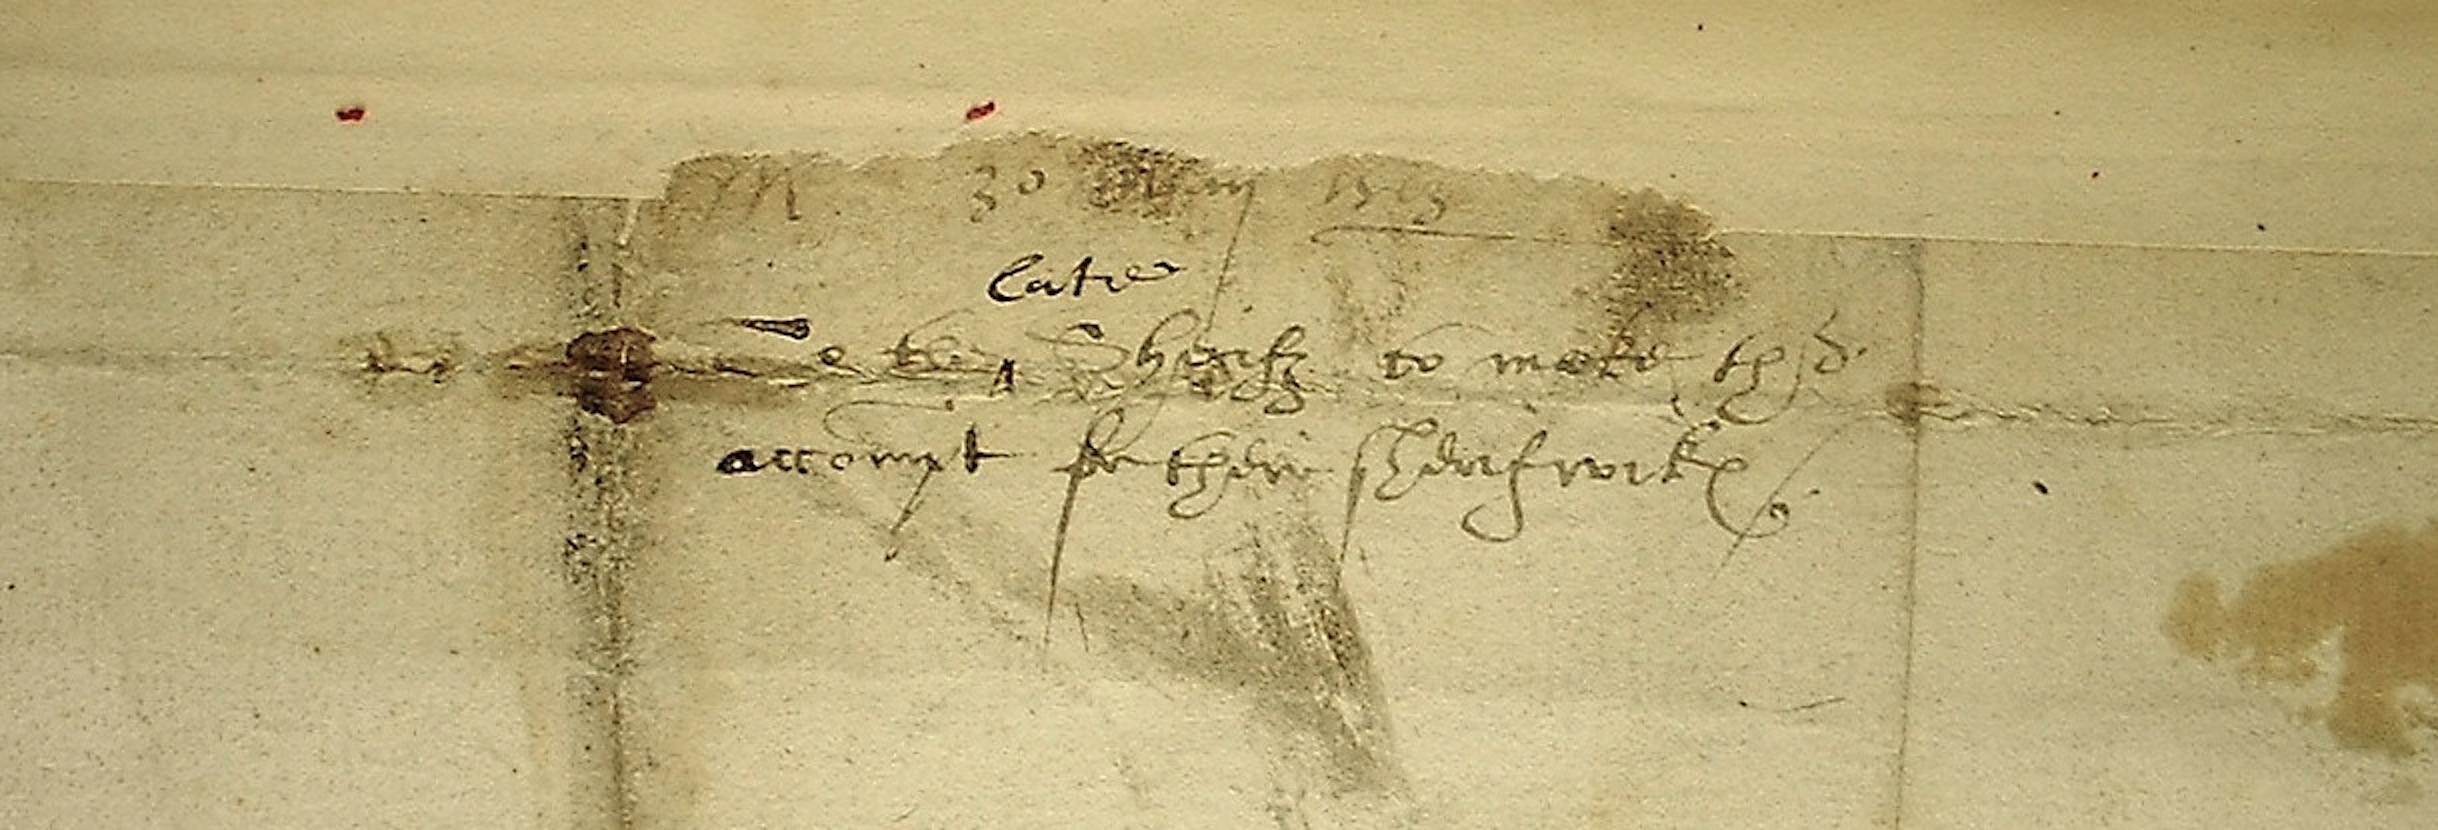 M. 30 1513
late
To the ‸ Sherifz to make theyr
accompt for their sherifwicke